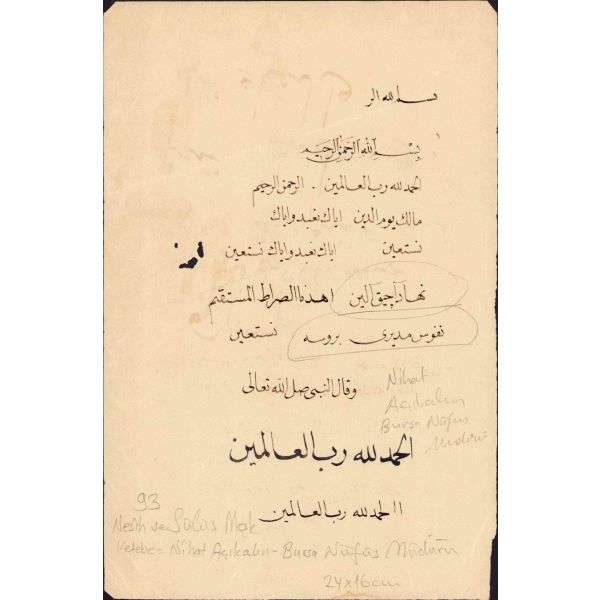 بسم الله الر
بسم الله الرحمن الرحيم
الحمد لله رب العالمين . الرحمن الرحيم
مالك يوم الدين اياك نعبد واياك
نستعين اياك نعبد واياك نستعين
نهاد آچيق الين اهدنا الصراط المستقيم
نفوس مديرى بروسه نستعين
وقال النبى صل الله تعالى
Nihat
Açıkalın
Bursa Nüfus
Müdürü
الحمد لله رب العالمين
93
الحمد لله رب العالمين
Nesih ve Sülüs Meşk
Ketebe = Nihat Açıkalın - Bursa Nüfus Müdürü
24x16cm